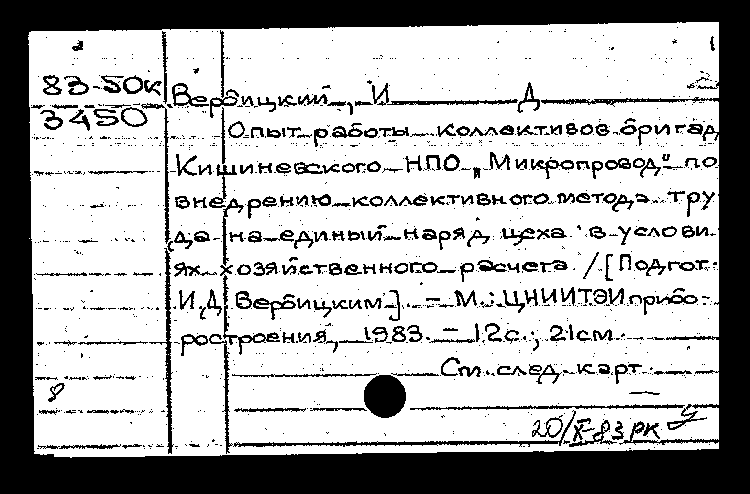 83-50к
3450
Вербицкий, И Д
Опыт работы коллективов бригад
Кишиневского НПО „Микропровод" по
внедрению коллективного метода тру
да на единый наряд цеха в услови
ях хозяйственного расчета / [Подгот.
И.Д. Вербицким]. - М.: ЦНИИТЭИ прибо-
ростроения, 1983. - 12с.; 21см.
См. след. карт.
8
20/X-83 РК